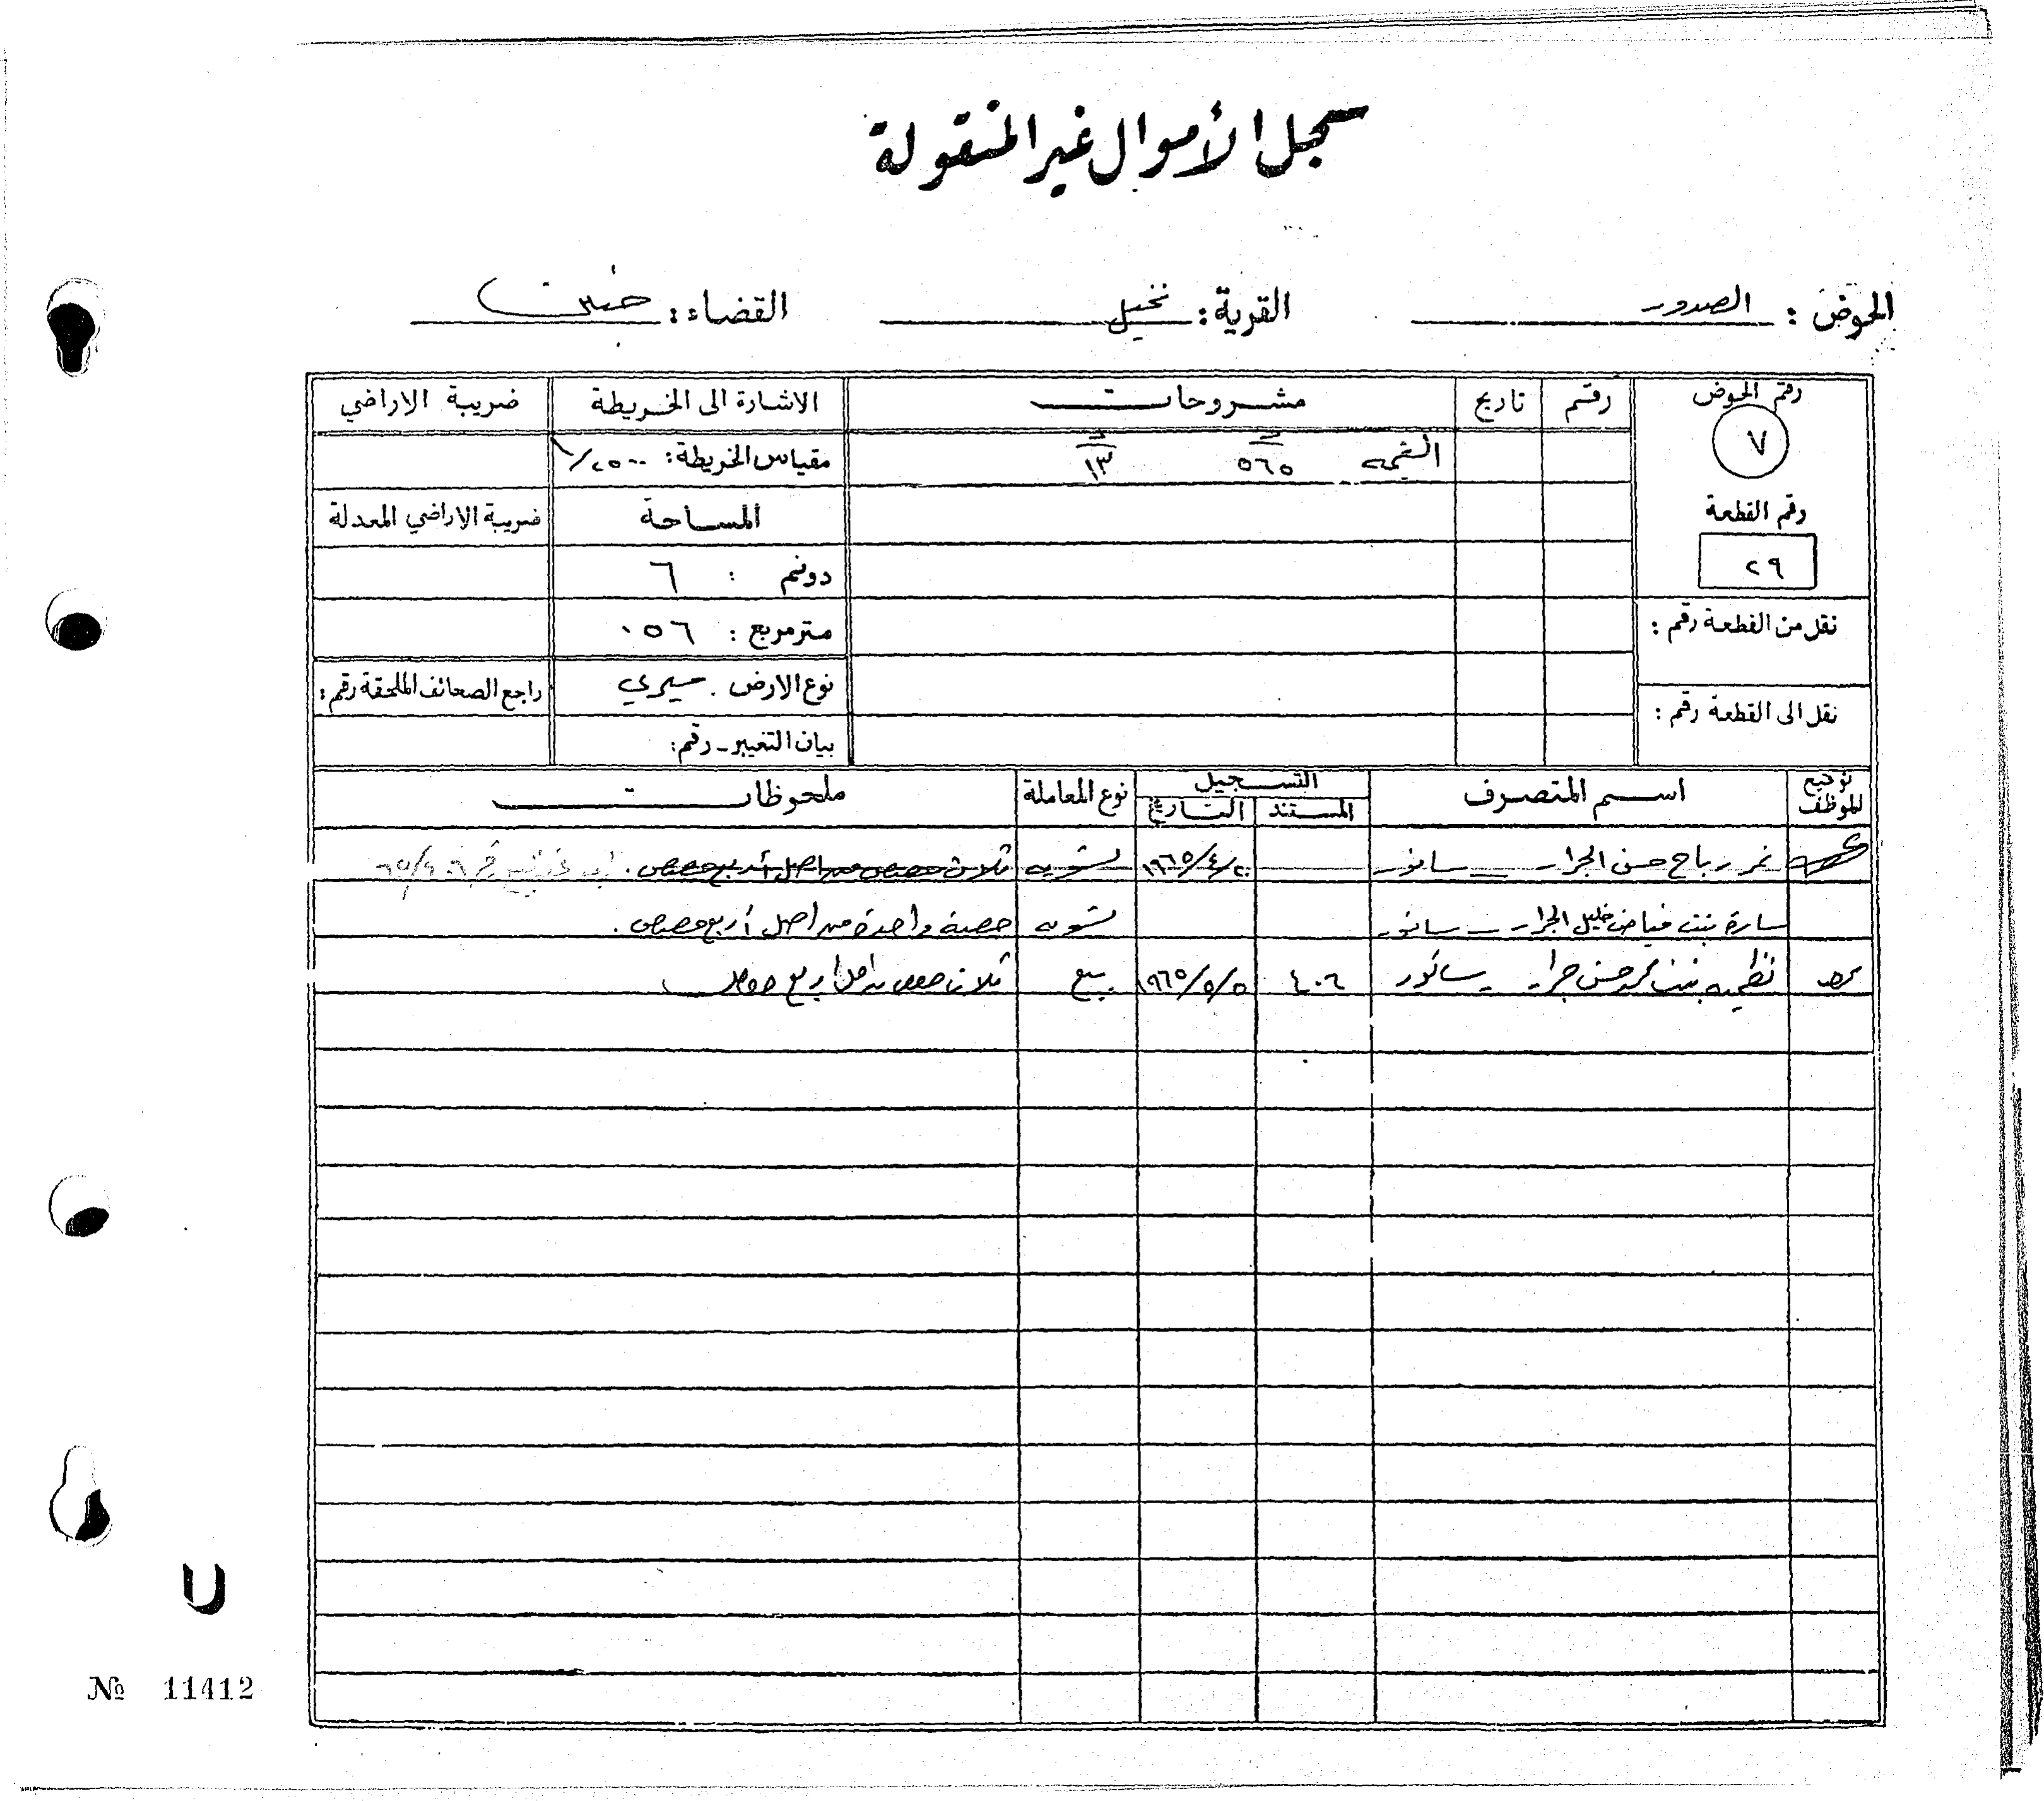 سجل الأموال غير المنقولة
الحوض : الصدور القرية : نخيل القضاء : جنين
رقم الحوض رقم تاريخ مشروحات الاشارة الى الخريطة ضريبة الاراضي
٧ القيمه ٥٦٥ ١٣ مقياس الخريطة : ١/٢٥٠٠
رقم القطعة المساحة ضريبة الاراضي المعدلة
٢٩ دونم : ٦
نقل من القطعة رقم : متر مربع : ٠٥٦
نوع الارض . ميري راجع الصحائف الملحقة رقم :
نقل الى القطعة رقم : بيان التغيير - رقم :
توقيع الموظف اسم المتصرف التسجيل نوع المعاملة ملحوظات
المستند التاريخ
نمر رباح حسن الجرار - سانور ١٩٦٥/٤/٢٠ تسويه ثلاث حصص من اصل أربع حصص .
سارة بنت فياض خليل الجرار - سانور تسويه حصة واحدة من اصل أربع حصص .
نظميه بنت محمد حسن جرار - سانور ٤٠٦ ١٩٦٥/٥/٥ بيع ثلاث حصص من اصل اربع حصص
№ 11412